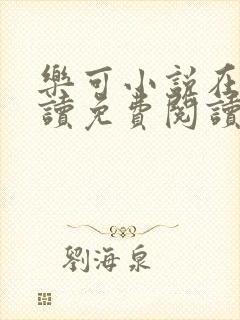 樂可小說在
讀免費閱讀
劉海泉